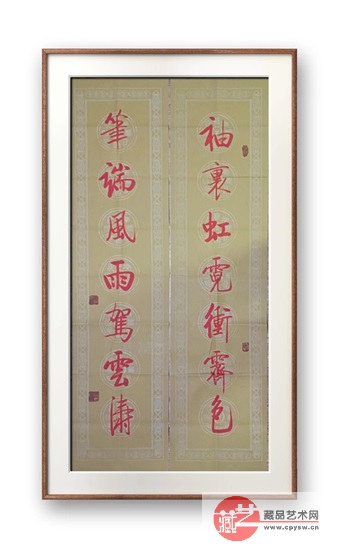 袖裏虹霓衝霽色
筆端風雨駕雲濤
藏品艺术网
www.cpysw.cn